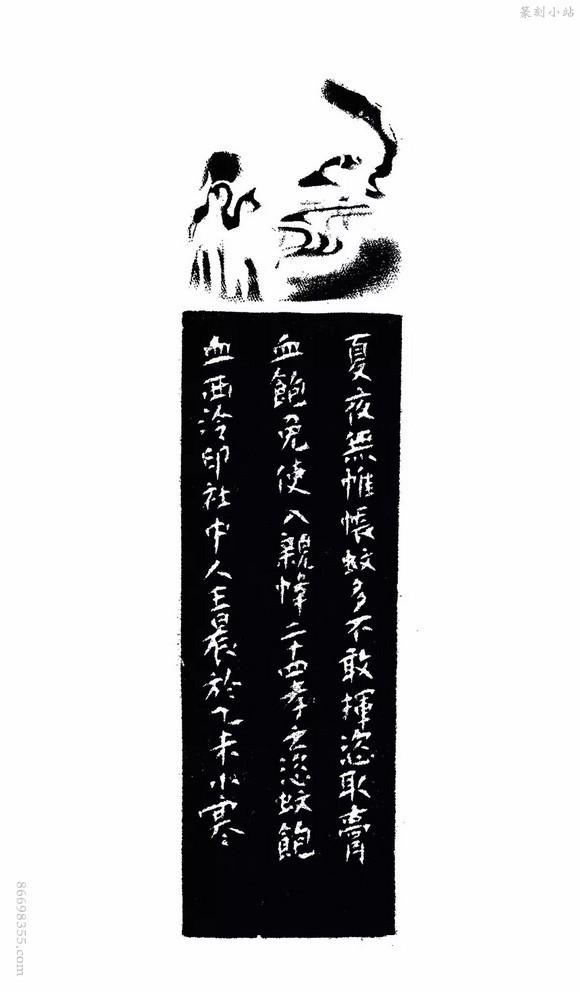 篆刻小站
夏夜無帷帳蚊多不敢揮恣取膏
血飽免使入親幃二十四孝之恣蚊飽
血西泠印社中人王晨於乙未小寒
86698355.com